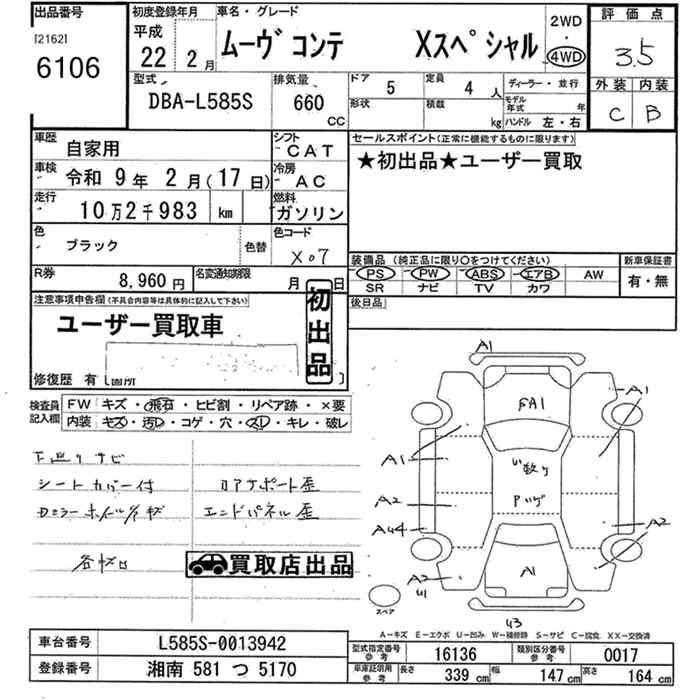 出品番号
[2162]
6106
初度登録年月
平成
22年 2月
車名・グレード
ムーヴコンテ Xスペシャル
2WD
・
4WD
評価点
3.5
外装 内装
C B
型式
DBA-L585S
排気量
660
CC
ドア 5
定員 4人
形状
積載 kg
ディーラー・並行
モデル年式 年
ハンドル 左・右
車歴 自家用
シフト CAT
車検 令和 9年 2月(17日)
冷房 AC
走行 10万2千983 km
燃料 ガソリン
色 ブラック
色替
色コード
X07
R券 8,960円
名変通知期限 月 日
セールスポイント(正常に機能するものに限ります)
★初出品★ユーザー買取
装備品(純正品に限り○をつけてください)
PS PW ABS エアB AW
SR ナビ TV カワ
新車保証書
有・無
後日品
注意事項申告欄(不具合内容等は具体的に記入して下さい)
ユーザー買取車
初出品
修復歴 有
箇所
検査員記入欄
FW キズ・飛石・ヒビ割・リペア跡・×要
内装 キズ・汚レ・コゲ・穴・スレ・キレ・破レ
下廻りサビ
シートカバー付
リアサポート歪
エンドパネル歪
買取店出品
A1
A1
EA1
A1
A2
A2
A1
U3
スペア
A-キズ E-エクボ U-凹み W-補修跡 S-サビ C-腐食 XX-交換済
車台番号 L585S-0013942
登録番号 湘南 581 つ 5170
型式指定番号 参考 16136
類別区分番号 参考 0017
車庫証明用 参考
長さ 339 cm
幅 147 cm
高さ 164 cm